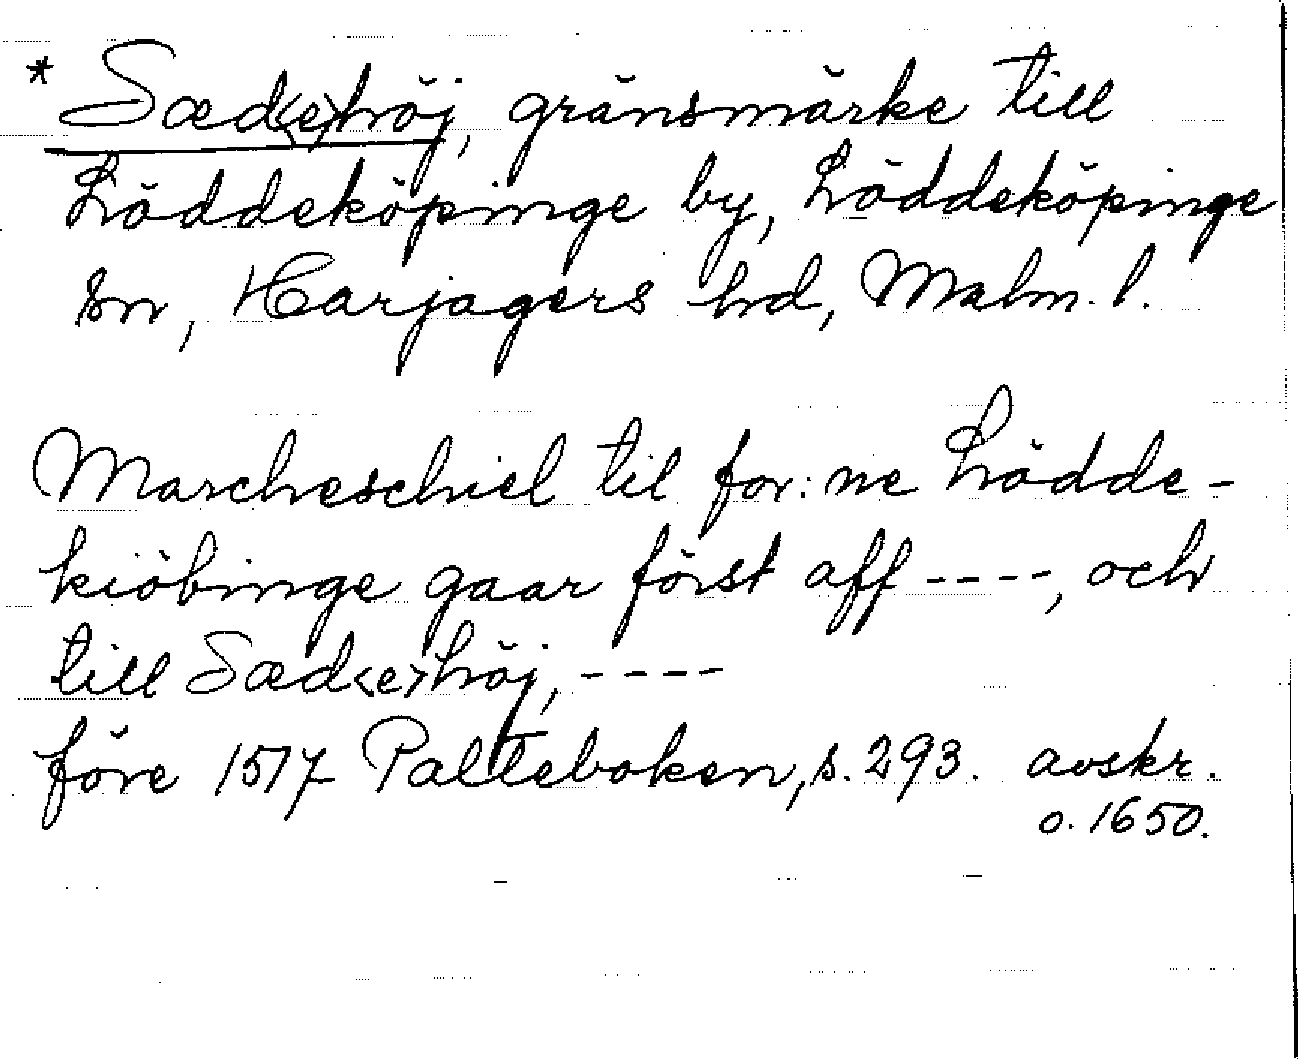 * Sæd<e>höj, gränsmärke till
Löddeköpinge by, Löddeköpinge
sn, Harjagers hd, Malm. l.
Marcheschiel til for:ne Lödde-
kiöbinge gaar först aff ----, och
till Sæd<e>höj, ----
före 1517 Palteboken, s. 293. avskr.
o. 1650.